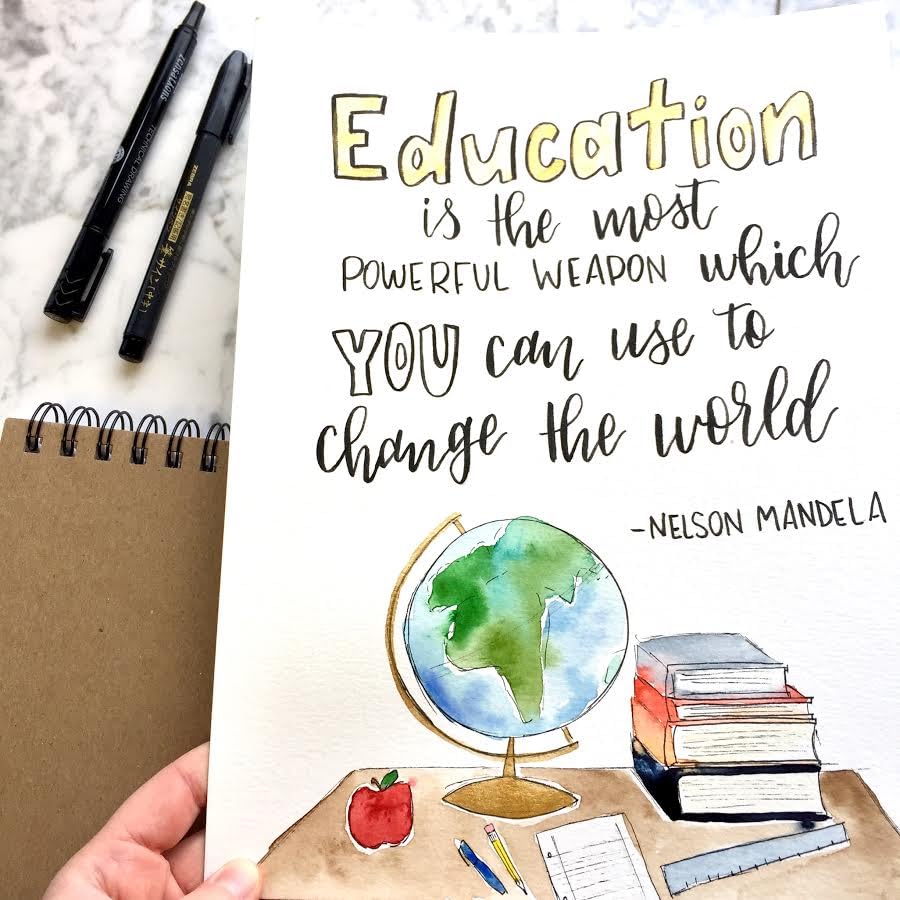 Education
is the most
POWERFUL WEAPON which
YOU can use to
change the world
-NELSON MANDELA
zensations
TECHNICAL DRAWING
ZEBRA
筆サイン(中字)